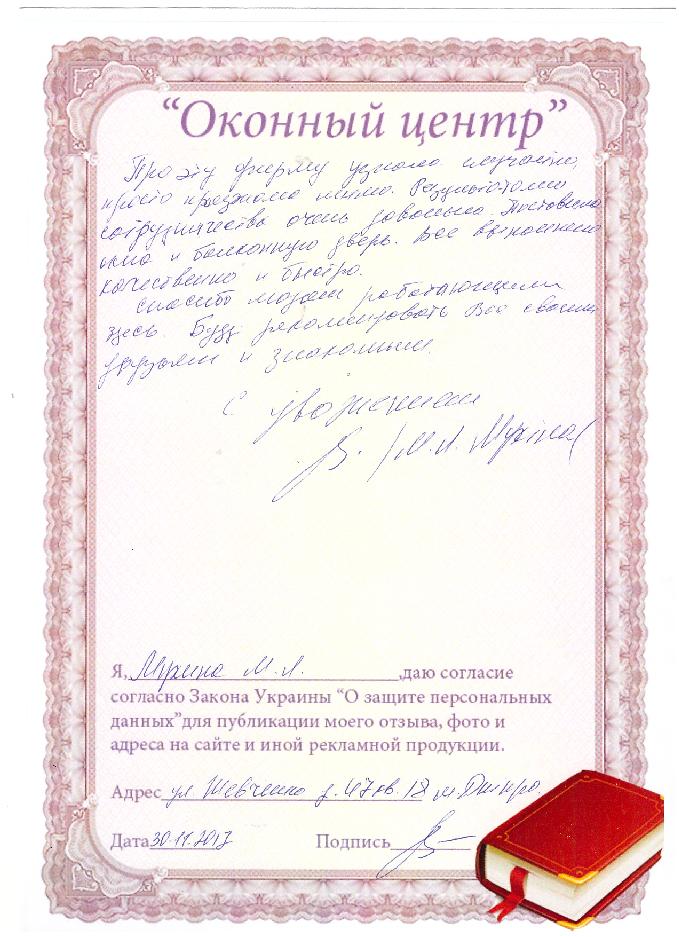 “Оконный центр”
Про эту фирму узнала случайно,
просто проезжала мимо. Результатами
сотрудничества очень довольна. Поставила
окно и балконную дверь. Все выполнено
качественно и быстро.
Спасибо людям работающим
здесь. Буду рекомендовать Вас своим
друзьям и знакомым.
С уважением
/М.Л. Мухіна/
Я, Мухина М.Л. ,даю согласие
согласно Закона Украины “О защите персональных
данных”для публикации моего отзыва, фото и
адреса на сайте и иной рекламной продукции.
Адрес ул Шевченко д. 47 кв. 18 м. Дніпро
Дата 30.11.2017 Подпись